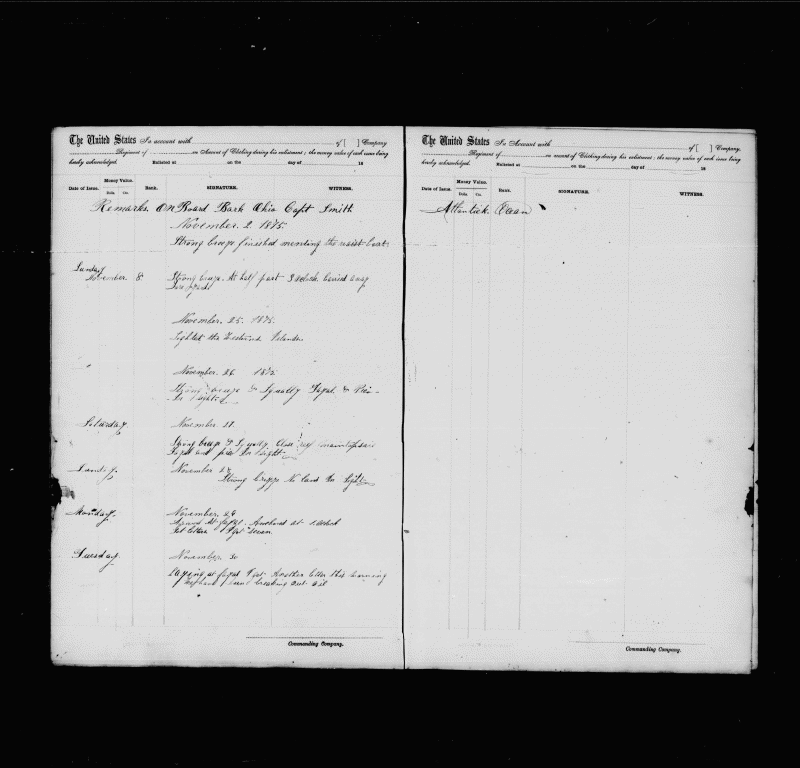 The United States In account with of [ ] Company
Regiment of on Account of Clothing during his enlistment; the money value of each issue being
hereby acknowledged. Enlisted at on the day of 18
Money Value.
Date of Issue. Dolls. Cts. Rank. SIGNATURE. WITNESS.
Remarks. On Board Bark Ohio Capt Smith
November. 2 1875.
Strong breeze finished mending the waist boat
Sunday
November 8 Strong breeze. At half past 3 oclock. Carried away
November. 25. 1875.
Sighted the Islands
November. 26 1875
Strong breeze & Squally Fayal. & Pico
In Sight
Saturday November 27.
Strong breeze & Squally. Close reef maintopsail
Fayal and pico In Sight
Sunday November 28
Strong breeze No land In Sight
Monday. November. 29
Around At fayal. Anchored at oclock
Tuesday November. 30
Laying at fayal Got Another letter this morning
breaking out oil
Commanding Company.
The United States In account with of [ ] Company.
Regiment of on account of Clothing during his enlistment; the money value of each issue being
hereby acknowledged. Enlisted at on the day of 18
Money Value.
Date of Issue. Dolls. Cts. Rank. SIGNATURE. WITNESS.
Atlantick Ocean
Commanding Company.